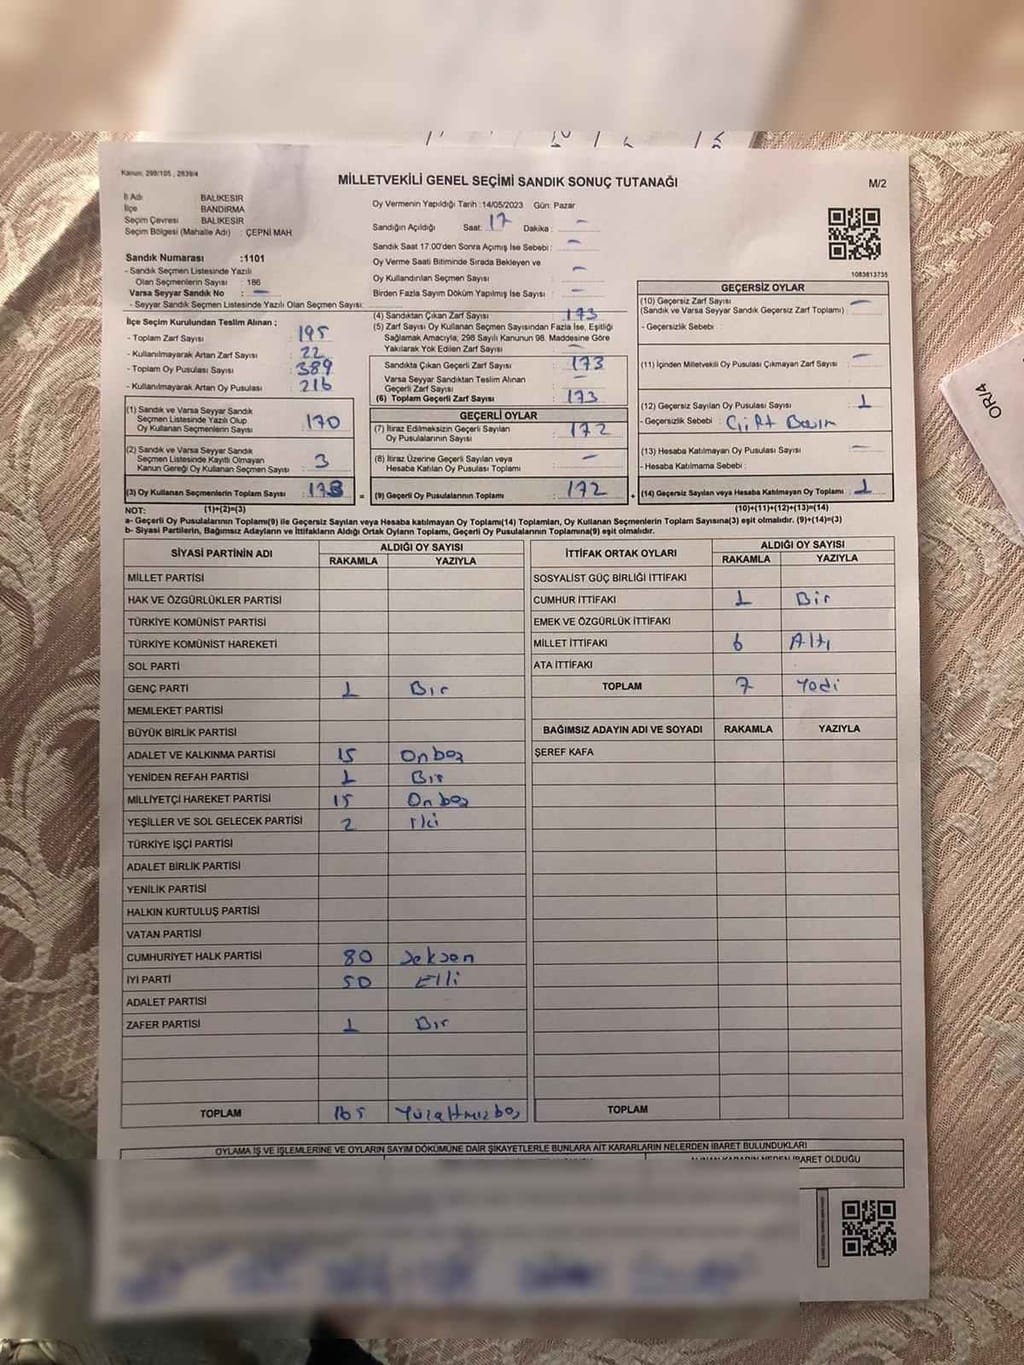 Kanun: 298/105 , 2839/4
MİLLETVEKİLİ GENEL SEÇİMİ SANDIK SONUÇ TUTANAĞI
M/2
İl Adı BALIKESİR
İlçe BANDIRMA
Seçim Çevresi BALIKESİR
Seçim Bölgesi (Mahalle Adı) : ÇEPNİ MAH
Sandık Numarası :1101
- Sandık Seçmen Listesinde Yazılı
Olan Seçmenlerin Sayısı : 186
Varsa Seyyar Sandık No : –
- Seyyar Sandık Seçmen Listesinde Yazılı Olan Seçmen Sayısı:
Oy Vermenin Yapıldığı Tarih :14/05/2023 Gün: Pazar
Sandığın Açıldığı Saat: 17 Dakika : –
Sandık Saat 17.00'den Sonra Açımış İse Sebebi : –
Oy Verme Saati Bitiminde Sırada Bekleyen ve
Oy Kullandırılan Seçmen Sayısı –
Birden Fazla Sayım Döküm Yapılmış İse Sayısı : –
1083813735
İlçe Seçim Kurulundan Teslim Alınan ;
- Toplam Zarf Sayısı : 195
- Kullanılmayarak Artan Zarf Sayısı : 22
- Toplam Oy Pusulası Sayısı : 389
- Kullanılmayarak Artan Oy Pusulası : 216
(1) Sandık ve Varsa Seyyar Sandık
Seçmen Listesinde Yazılı Olup
Oy Kullanan Seçmenlerin Sayısı : 170
(2) Sandık ve Varsa Seyyar Sandık
Seçmen Listesinde Kayıtlı Olmayan
Kanun Gereği Oy Kullanan Seçmen Sayısı : 3
(3) Oy Kullanan Seçmenlerin Toplam Sayısı : 173
(4) Sandıktan Çıkan Zarf Sayısı : 173
(5) Zarf Sayısı Oy Kullanan Seçmen Sayısından Fazla İse, Eşitliği
Sağlamak Amacıyla, 298 Sayılı Kanunun 98. Maddesine Göre
Yakılarak Yok Edilen Zarf Sayısı : –
Sandıkta Çıkan Geçerli Zarf Sayısı : 173
Varsa Seyyar Sandıktan Teslim Alınan
Geçerli Zarf Sayısı : –
(6) Toplam Geçerli Zarf Sayısı : 173
GEÇERLİ OYLAR
(7) İtiraz Edilmeksizin Geçerli Sayılan
Oy Pusulalarının Sayısı : 172
(8) İtiraz Üzerine Geçerli Sayılan veya
Hesaba Katılan Oy Pusulası Toplamı : –
= (9) Geçerli Oy Pusulalarının Toplamı : 172
GEÇERSİZ OYLAR
(10) Geçersiz Zarf Sayısı
(Sandık ve Varsa Seyyar Sandık Geçersiz Zarf Toplamı) : –
- Geçersizlik Sebebi :
(11) İçinden Milletvekili Oy Pusulası Çıkmayan Zarf Sayısı : –
(12) Geçersiz Sayılan Oy Pusulası Sayısı : 1
- Geçersizlik Sebebi : Çift Basım
(13) Hesaba Katılmayan Oy Pusulası Sayısı : –
- Hesaba Katılmama Sebebi :
+ (14) Geçersiz Sayılan veya Hesaba Katılmayan Oy Toplamı : 1
NOT: (1)+(2)=(3) (10)+(11)+(12)+(13)=(14)
a- Geçerli Oy Pusulalarının Toplamı(9) ile Geçersiz Sayılan veya Hesaba katılmayan Oy Toplamı(14) Toplamları, Oy Kullanan Seçmenlerin Toplam Sayısına(3) eşit olmalıdır. (9)+(14)=(3)
b- Siyasi Partilerin, Bağımsız Adayların ve İttifakların Aldığı Ortak Oyların Toplamı, Geçerli Oy Pusulalarının Toplamına(9) eşit olmalıdır.
SİYASİ PARTİNİN ADI ALDIĞI OY SAYISI
RAKAMLA YAZIYLA
MİLLET PARTİSİ
HAK VE ÖZGÜRLÜKLER PARTİSİ
TÜRKİYE KOMÜNİST PARTİSİ
TÜRKİYE KOMÜNİST HAREKETİ
SOL PARTİ
GENÇ PARTİ 1 Bir
MEMLEKET PARTİSİ
BÜYÜK BİRLİK PARTİSİ
ADALET VE KALKINMA PARTİSİ 15 Onbeş
YENİDEN REFAH PARTİSİ 1 Bir
MİLLİYETÇİ HAREKET PARTİSİ 15 Onbeş
YEŞİLLER VE SOL GELECEK PARTİSİ 2 İki
TÜRKİYE İŞÇİ PARTİSİ
ADALET BİRLİK PARTİSİ
YENİLİK PARTİSİ
HALKIN KURTULUŞ PARTİSİ
VATAN PARTİSİ
CUMHURİYET HALK PARTİSİ 80 Seksen
İYİ PARTİ 50 Elli
ADALET PARTİSİ
ZAFER PARTİSİ 1 Bir
TOPLAM 165 Yüzaltmışbeş
İTTİFAK ORTAK OYLARI ALDIĞI OY SAYISI
RAKAMLA YAZIYLA
SOSYALİST GÜÇ BİRLİĞİ İTTİFAKI
CUMHUR İTTİFAKI 1 Bir
EMEK VE ÖZGÜRLÜK İTTİFAKI
MİLLET İTTİFAKI 6 Altı
ATA İTTİFAKI
TOPLAM 7 Yedi
BAĞIMSIZ ADAYIN ADI VE SOYADI RAKAMLA YAZIYLA
ŞEREF KAFA
TOPLAM
OYLAMA İŞ VE İŞLEMLERİNE VE OYLARIN SAYIM DÖKÜMÜNE DAİR ŞİKAYETLERLE BUNLARA AİT KARARLARIN NELERDEN İBARET BULUNDUKLARI
ALINAN KARARIN NEDEN İBARET OLDUĞU
OR/4